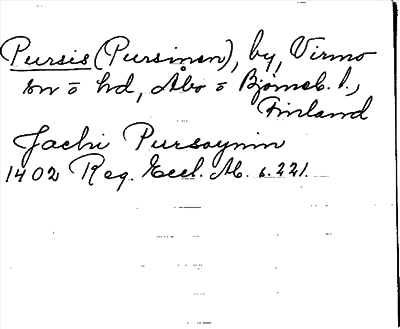 Pursis (Pursinen), by, Virmo
sn o hd, Åbo o Björneb. l.,
Finland
Jachi Pursoynin
1402 Reg. Eccl. Ab. s. 221.